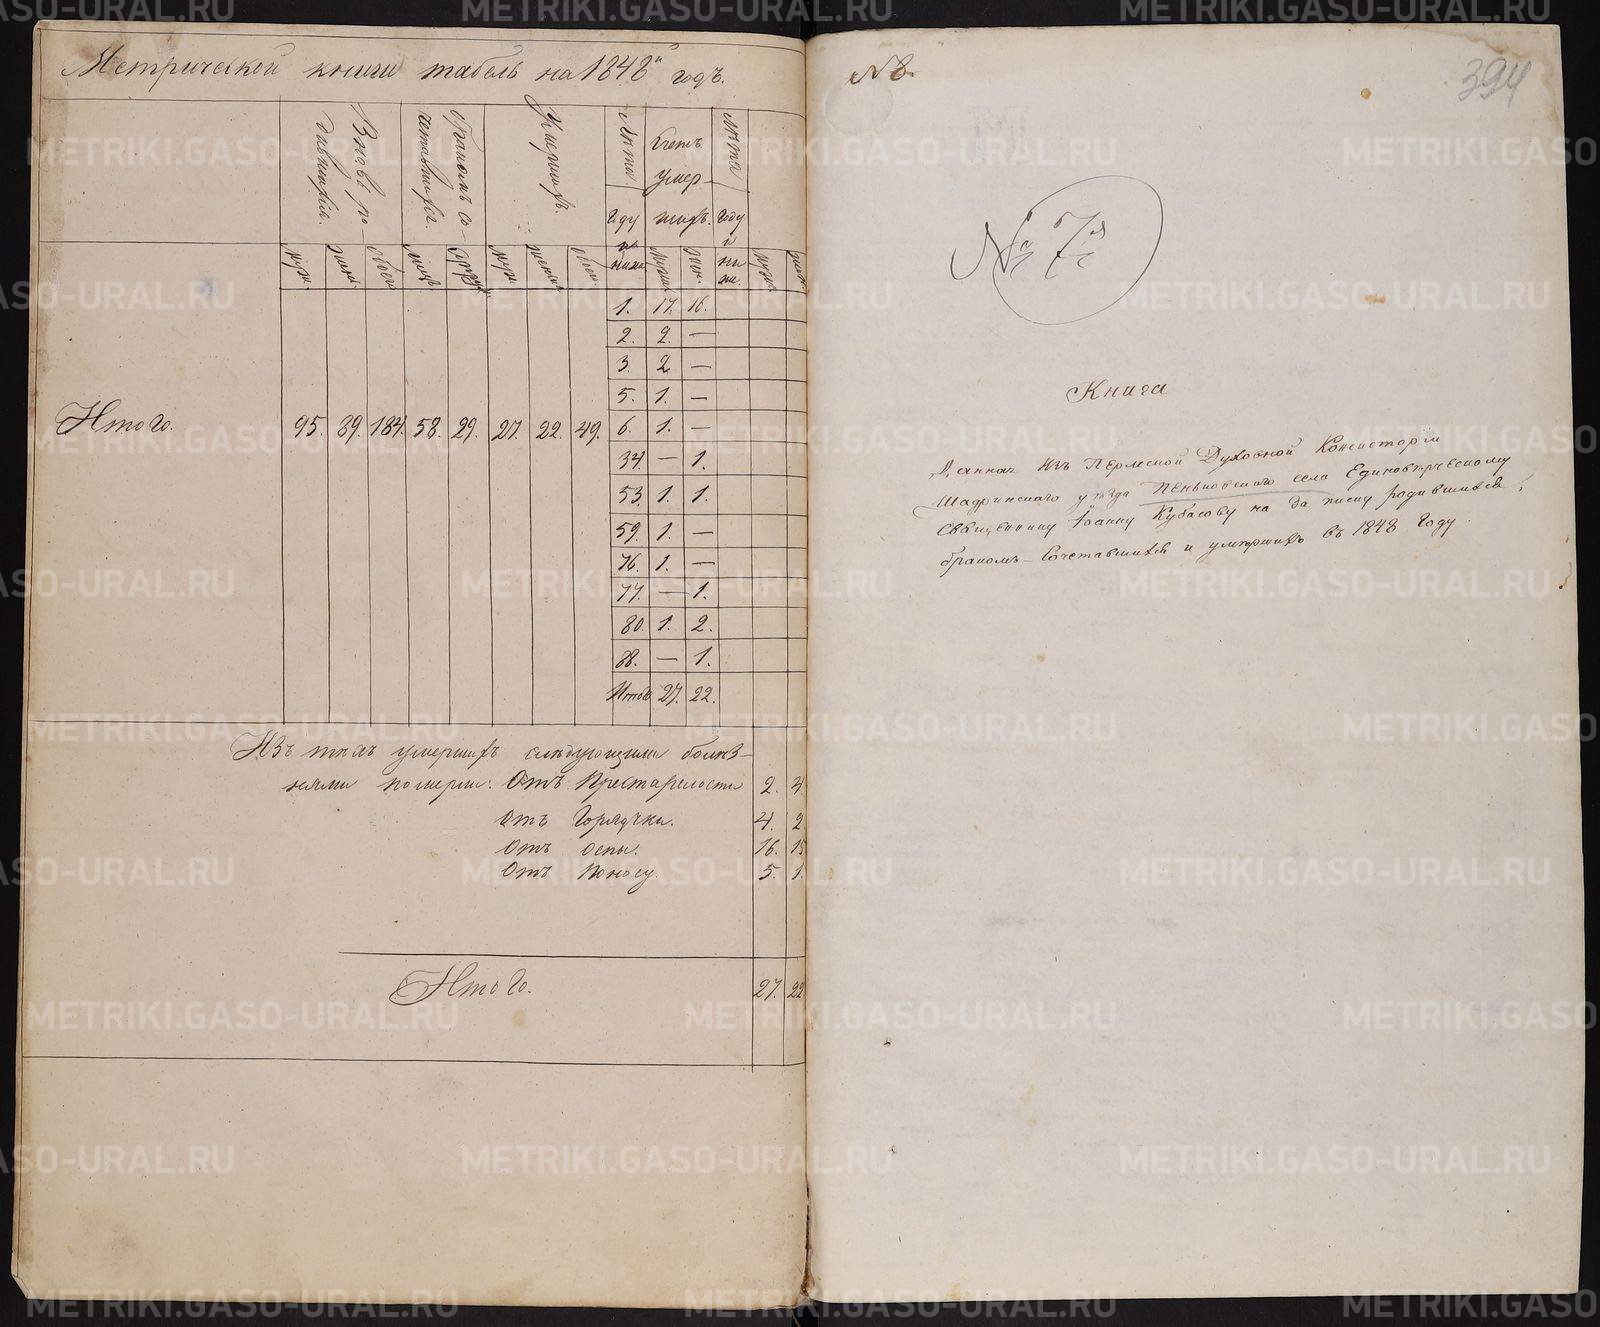 Метрической книги табель на 1848й годъ.
Вновь ро-
дившихся.
бракомъ со-
четавшихся.
Умершихъ.
Лѣта
Году
и
ниже
Счетъ
умер-
шихъ.
Лѣта
Году
и
ни
же.
муж. жен. обоего лицъ. муж. жен. обоего муж. жен.
1. 17. 16.
2. 2. —
3. 2 —
5. 1. —
Итого. 95. 89. 184. 58. 29. 27. 22. 49. 6. 1. —
34. — 1.
53. 1. 1.
59. 1. —
76. 1. —
77. — 1.
80. 1. 2.
88. — 1.
Итого 27. 22.
Изъ тѣхъ умершихъ слѣдующими болѣз-
нями померли: Отъ Престарелости 2. 4
отъ Горячки. 4. 2
Отъ оспы. 16. 15
Отъ Поносу. 5. 1.
Итого. 27. 22
N 8.
394
№ 7я
Книга
Данная изъ Пермской Духовной Консисторіи
Шадринскаго уѣзда Пеньковскаго села Единовѣрческому
Священнику Іоанну Кубасову на записку родившихся,
бракомъ-сочетавшихся и умершихъ въ 1848 Году
METRIKI.GASO-URAL.RU